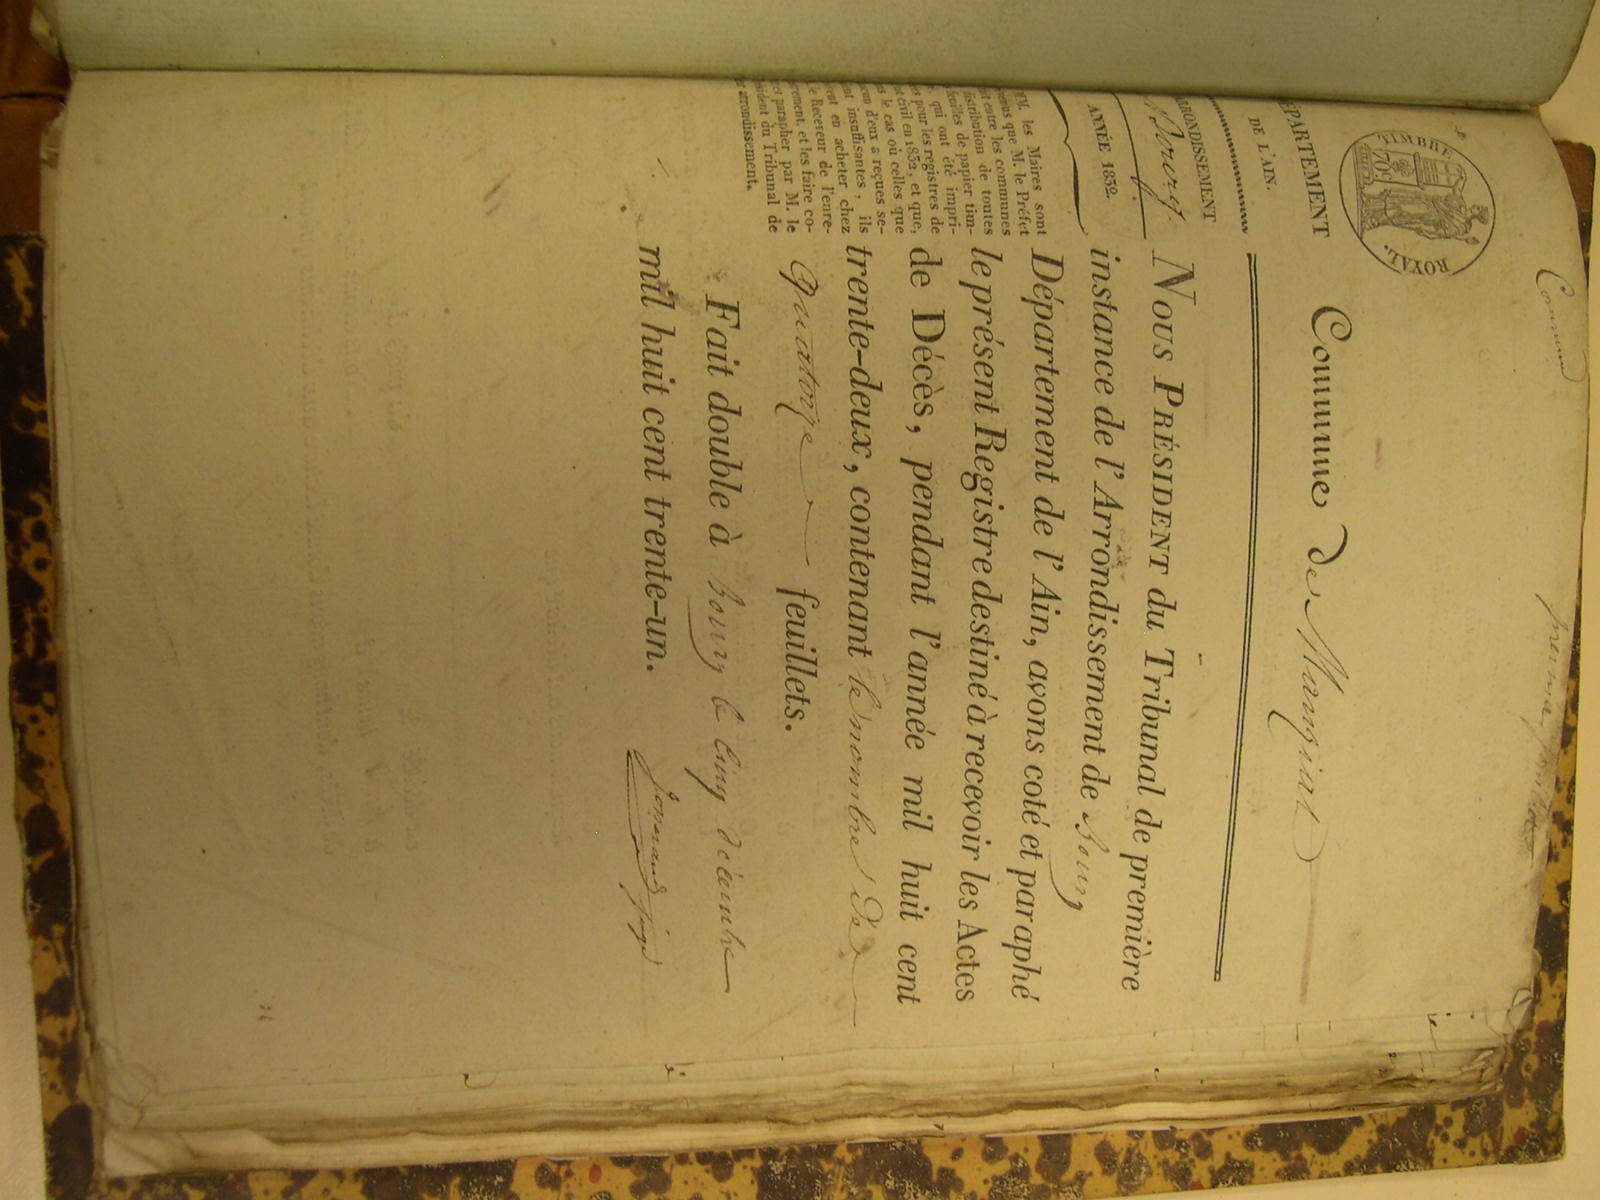 Commun
premier feuillet
TIMBRE ROYAL.
70c
ÉPARTEMENT
DE L'AIN.
RRONDISSEMENT
Bourg.
ANNÉE 1832.
MM. les Maires sont
venus que M. le Préfet
it entre les communes
istribution de toutes
feuilles de papier tim-
, qui ont été impri-
es pour les registres de
t civil en 1832, et que,
s le cas où celles que
cun d'eux a reçues se-
nt insuffisantes, ils
ent en acheter chez
le Receveur de l'enre-
rement, et les faire co-
et parapher par M. le
sident du Tribunal de
r arrondissement.
Commune de Manziat
NOUS PRÉSIDENT du Tribunal de première
instance de l'Arrondissement de Bourg
Département de l'Ain, avons coté et paraphé
le présent Registre destiné à recevoir les Actes
de Décès, pendant l'année mil huit cent
trente-deux, contenant le nombre de
Quatorze feuillets.
Fait double à Bourg le cinq décembre
mil huit cent trente-un.
juge